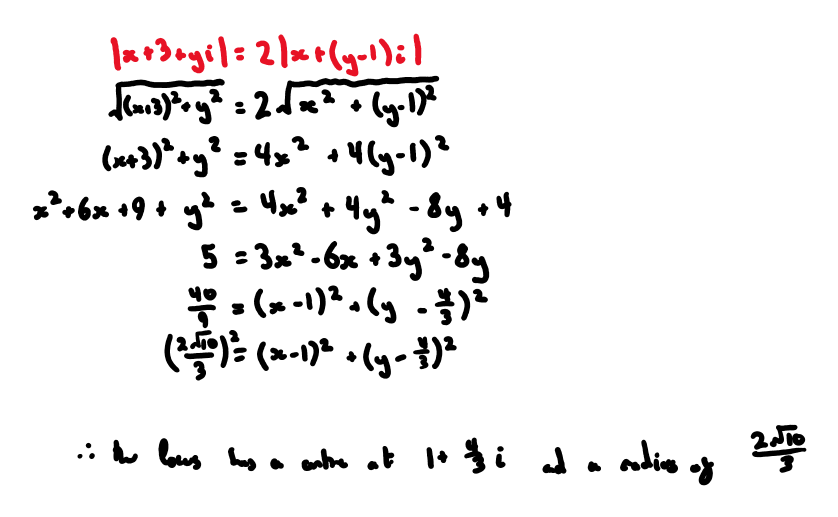 |x+3+yi| = 2|x+(y-1)i|
√((x+3)²+y²) = 2√(x² + (y-1)²)
(x+3)²+y² = 4x² + 4(y-1)²
x²+6x+9 + y² = 4x² + 4y² - 8y + 4
5 = 3x² - 6x + 3y² - 8y
40/9 = (x-1)² + (y - 4/3)²
(2√10/3)² = (x-1)² + (y - 4/3)²
∴ the locus has a centre at 1 + 4/3 i and a radius of 2√10/3